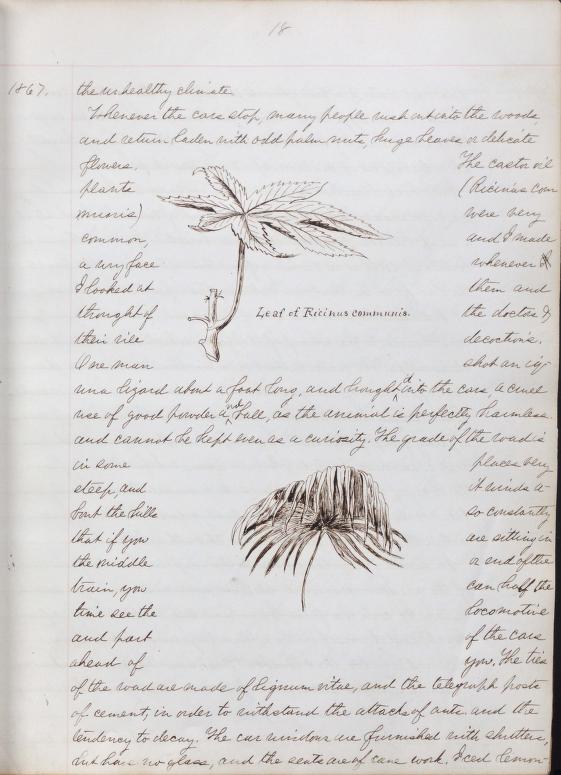 18
1867. the unhealthy climate.
Whenever the cars stop, many people rush out into the woods,
and return laden with odd palm nuts, huge leaves or delicate
flowers. The castor oil
plants (Ricinus com
munis) were very
common, and I made
a wry face whenever
I looked at them and
thought of the doctors &
their vile decoctions.
One man shot an ig-
una lizard about a foot long, and bought it into the cars, a cruel
use of good powder and ball, as the animal is perfectly harmless
and cannot be kept even as a curiosity. The grade of the road is
in some places very
steep, and it winds a-
bout the hills so constantly
that if you are sitting in
the middle or end of the
train, you can half the
time see the locomotive
and part of the cars
ahead of you. The ties
of the road are made of lignum vitae, and the telegraph posts
of cement, in order to withstand the attacks of ants and the
tendency to decay. The car windows are furnished with shutters,
but have no glass, and the seats are of cane work. Iced lemon-
Leaf of Ricinus communis.